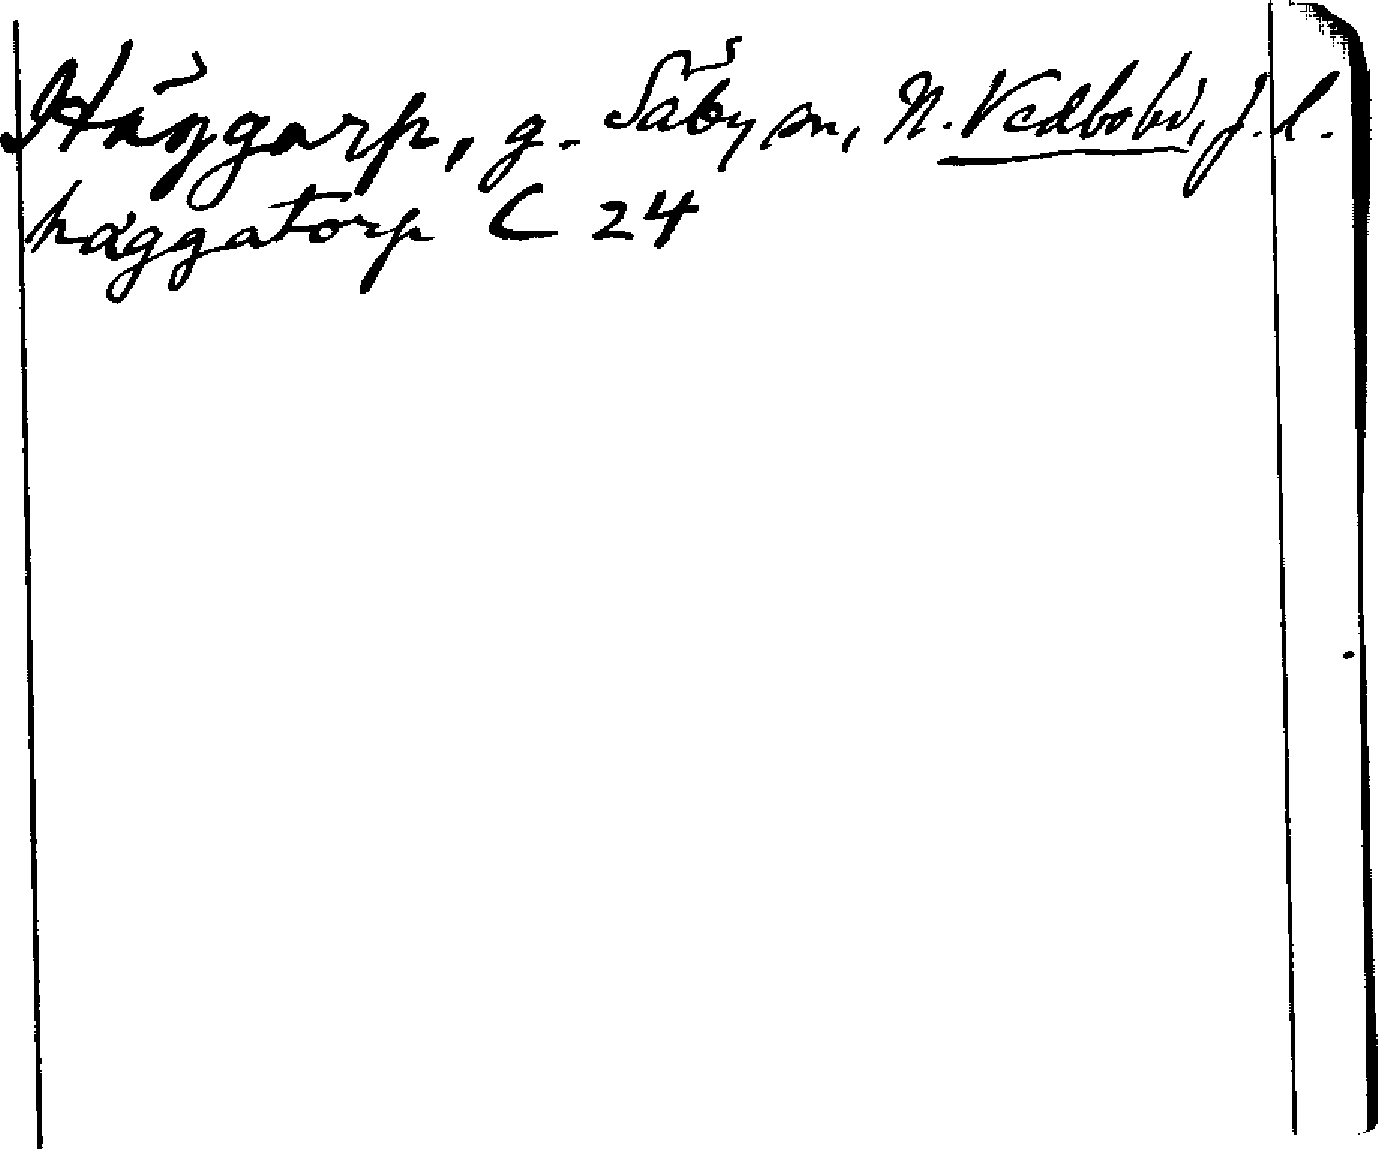 Häggarp, g. Säby sn, N. Vedbohd, J. l.
häggatorp C 24